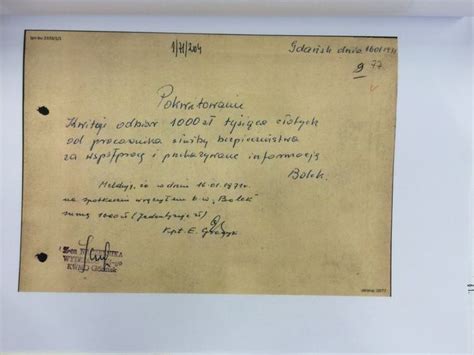 1/H/204
Gdańsk dnia 18.01.1971
9 77
Pokwitowanie
Kwituję odbiór 1000 zł tysiąca złotych
od pracownika służby bezpieczeństwa
za współpracę i przekazywane informacje
Bolek.
Melduję, że w dniu 18.01.1971r.
na spotkaniu wręczyłem t.w. "Bolek"
sumę 1000 zł (jeden tysiąc zł)
Kpt. E. Graczyk
KWMO Gdańsk